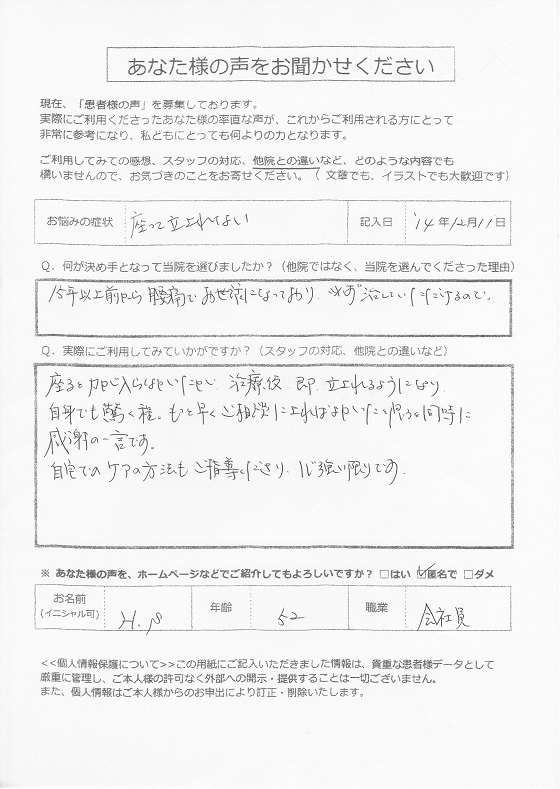 あなた様の声をお聞かせください
現在、「患者様の声」を募集しております。
実際にご利用くださったあなた様の率直な声が、これからご利用される方にとって
非常に参考になり、私どもにとっても何よりの力となります。
ご利用してみての感想、スタッフの対応、他院との違いなど、どのような内容でも
構いませんので、お気づきのことをお寄せください。（ 文章でも、イラストでも大歓迎です）
お悩みの症状 座って立上れない 記入日 '14年12月11日
Q．何が決め手となって当院を選びましたか？（他院ではなく、当院を選んでくださった理由）
15年以上前から腰痛でお世話になっており、必ず治していただけるので。
Q．実際にご利用してみていかがですか？（スタッフの対応、他院との違いなど）
座ると力が入らない 治療後、即、立上れるようになり、
自身でも驚く程。もっと早くご相談 と思うと同時に
感謝の一言です。
自宅でのケアの方法もご指導くださり、心強い限りです。
※ あなた様の声を、ホームページなどでご紹介してもよろしいですか？ □はい ☑匿名で □ダメ
お名前
(イニシャル可) H. 年齢 52 職業 会社員
<<個人情報保護について>>この用紙にご記入いただきました情報は、貴重な患者様データとして
厳重に管理し、ご本人様の許可なく外部への開示・提供することは一切ございません。
また、個人情報はご本人様からのお申出により訂正・削除いたします。